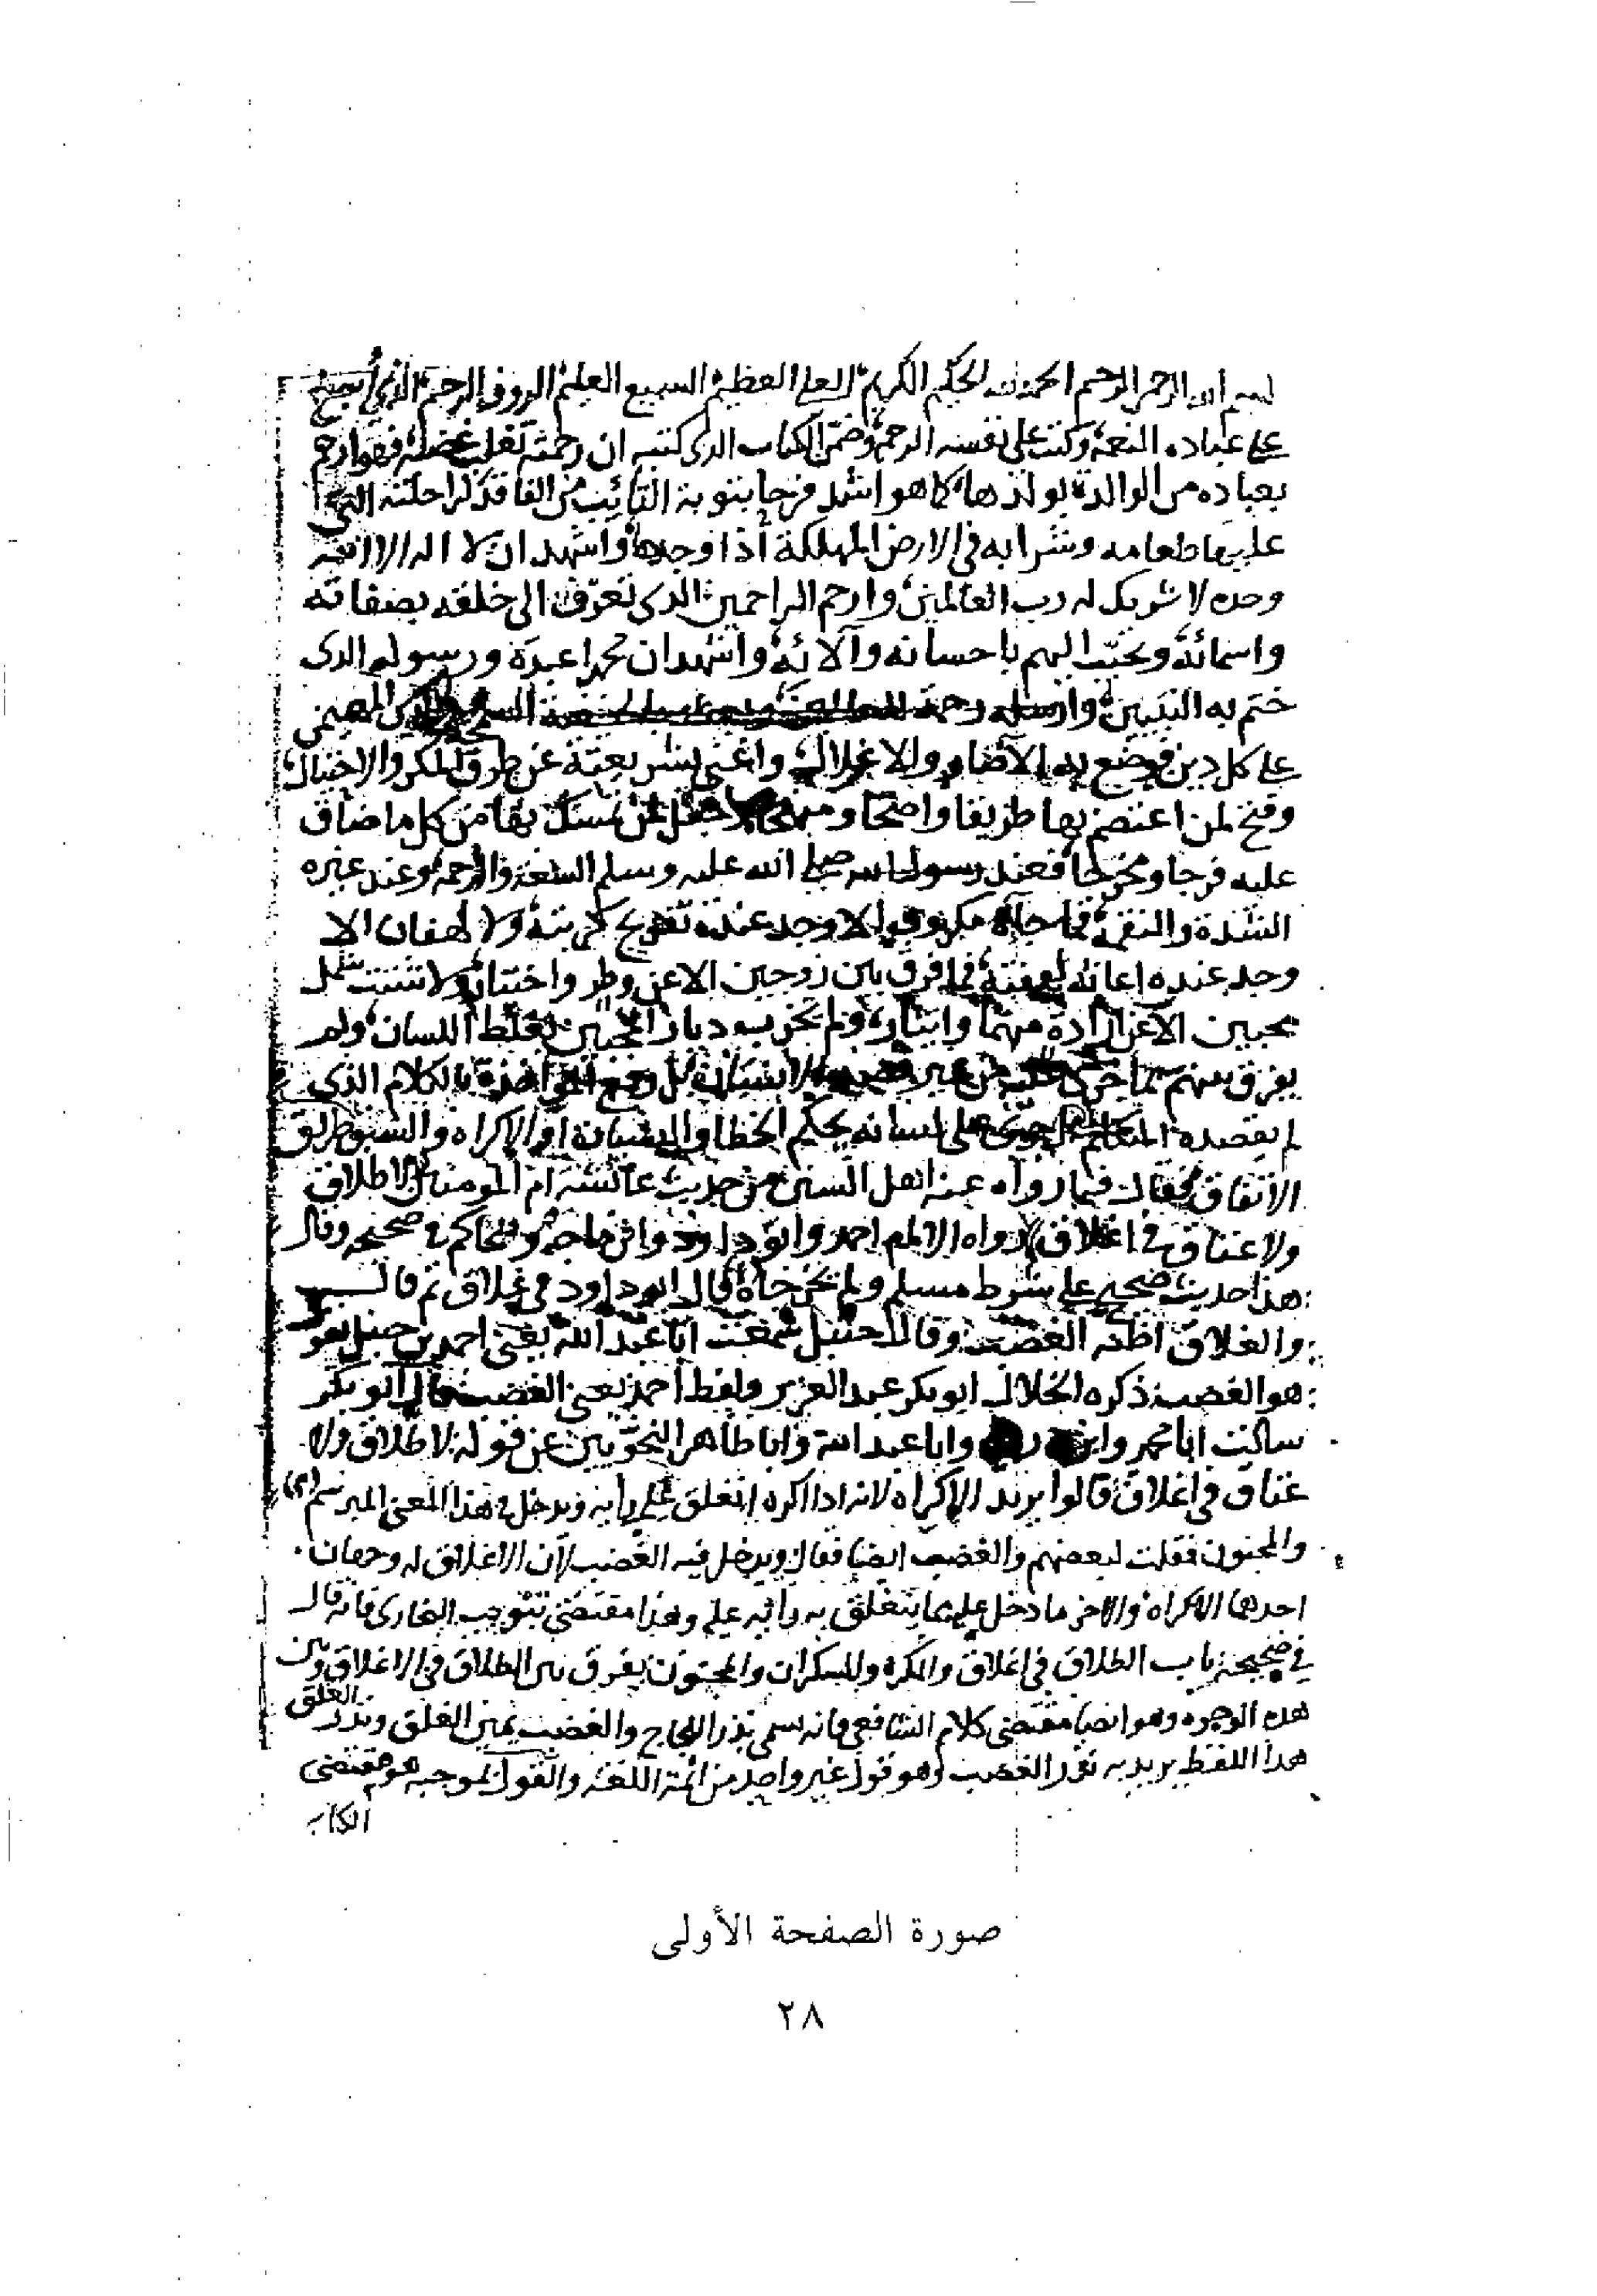 بسم الله الرحمن الرحيم الحمد لله الحكيم الكريم العلي العظيم السميع العليم الرؤوف الرحيم الذي أسبغ
على عباده النعمة وكتب على نفسه الرحمة وضمن الكتاب الذي كتبه ان رحمته تغلب غضبه فهو ارحم
بعباده من الوالدة بولدها كما هو اشد فرحا بتوبة التائب من الفاقد لراحلته التي
عليها طعامه وشرابه في الارض المهلكة اذا وجدها واشهد ان لا اله الا الله
وحده لا شريك له رب العالمين وارحم الراحمين الذي تعرف الى خلقه بصفاته
واسمائه وتحبب اليهم باحسانه وآلائه واشهد ان محمدا عبده ورسوله الذي
ختم به النبيين وارسله رحمة للعالمين المهيمن
على كل دين فوضع به الآصار والاغلال واغنى بشريعته عن طرق المكر والاحتيال
وفتح لمن اعتصم بها طريقا واضحا ومنهجا وجعل لمن تمسك بها من كل ما ضاق
عليه فرجا ومخرجا فعند رسول الله صلى الله عليه وسلم السعة والرحمة وعند غيره
الشدة والنقمة فما جاءه مكروب الا وجد عنده تفريج كربته ولا لهفان الا
وجد عنده اعانة لهفته فما فرق بين زوجين الا عن وطر واختيار ولا شتت شمل
محبين الا عن ارادة منهما وايثار ولم يخرب ديار المحبين بغلط اللسان ولم
يفرق بينهم بما جرى عليه من غير قصد الانسان بل رفع المؤاخذة بالكلام الذي
لم يقصده المتكلم بل جرى على لسانه بحكم الخطا والنسيان او الاكراه والسبق على طريق
الاتفاق فقال فيما رواه عنه اهل السنن من حديث عائشة ام المومنين لا طلاق
ولا عتاق في اغلاق رواه الامام احمد وابو داود وابن ماجه والحاكم في صحيحه وقال
هذا حديث صحيح على شرط مسلم ولم يخرجاه قال ابو داود في غلاق ثم قال
والغلاق اظنه الغضب وقال حنبل سمعت ابا عبد الله يعني احمد بن حنبل يقول
هو الغضب ذكره الخلال ابو بكر عبد العزيز ولفظ احمد يعني الغضب قال ابو بكر
سالت ابا محمد وابن دريد وابا عبد الله وابا طاهر النحويين عن قوله لا طلاق ولا
عتاق في اغلاق قالوا يريد الاكراه لانه اذا اكره انغلق عليه رأيه ويدخل في هذا المعنى المبرسم (٢)
والمجنون فقلت لبعضهم والغضب ايضا فقال ويدخل فيه الغضب لأن الاغلاق له وجهان
احدهما الاكراه والاخر ما دخل عليه مما ينغلق به رأيه عليه وهذا مقتضى تبويب البخاري فانه قال
في صحيحه باب الطلاق في اغلاق والمكره والسكران والمجنون يفرق بين الطلاق في الاغلاق وبين
هذه الوجوه وهو ايضا مقتضى كلام الشافعي فانه سمى نذر اللجاج والغضب يمين الغلق ونذر الغلق
هذا اللفظ يريد به نذر الغضب وهو قول غير واحد من ائمة اللغة والقول بموجبه هو مقتضى
الكتاب
صورة الصفحة الأولى
٢٨